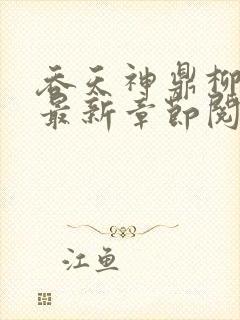 吞天神鼎柳
最新章节阅
江鱼